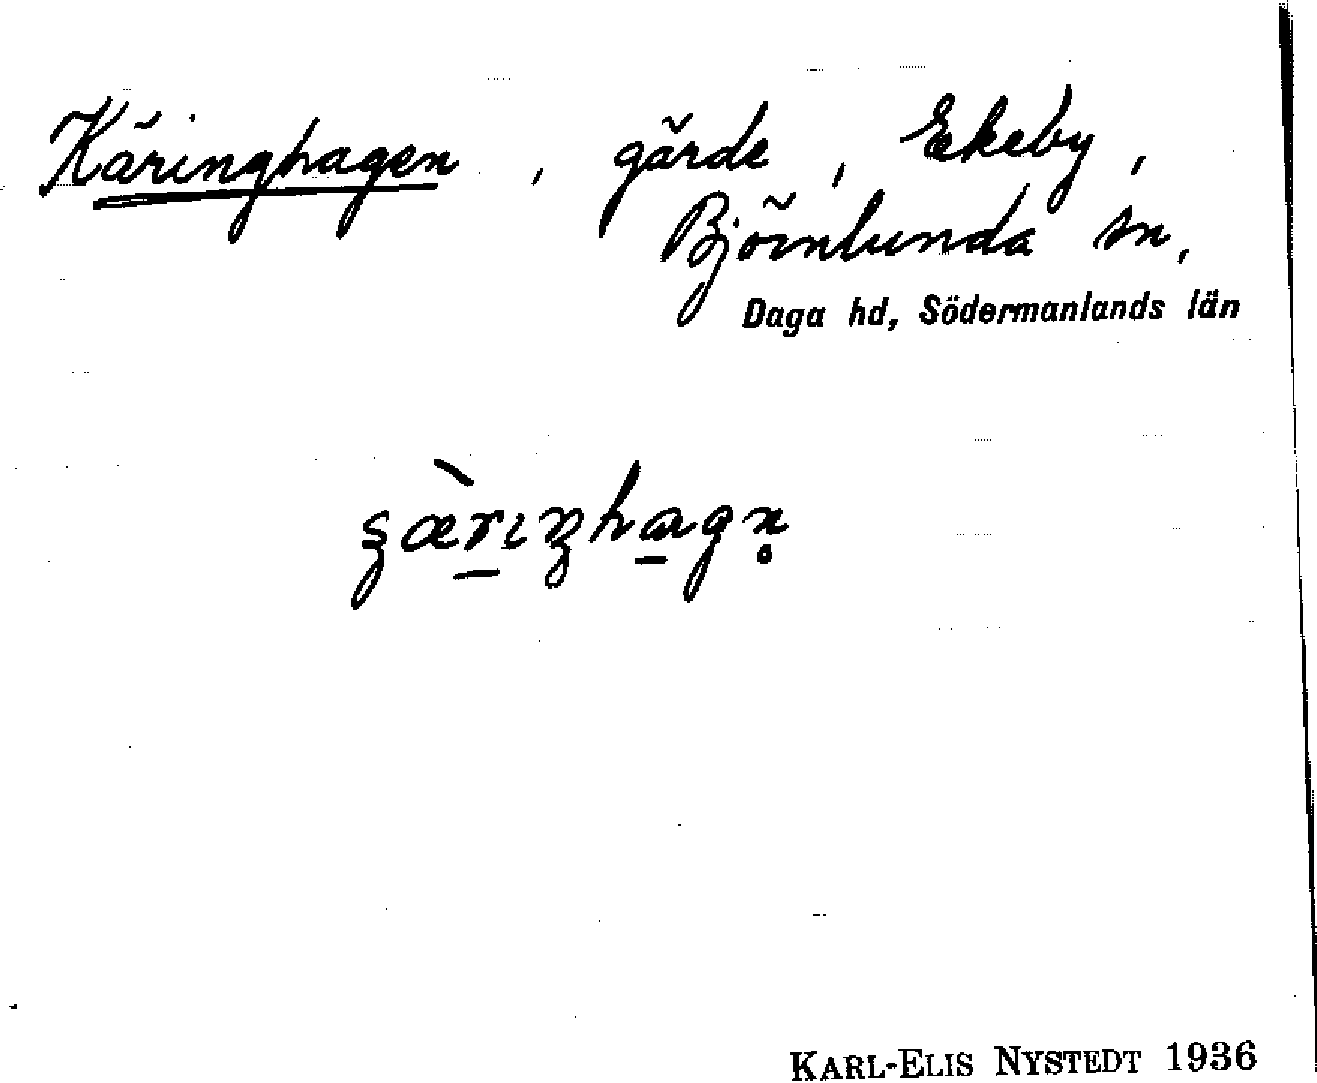 Käringhagen, gärde, Ekeby,
Björnlunda sn,
Daga hd, Södermanlands län
KARL-ELIS NYSTEDT 1936